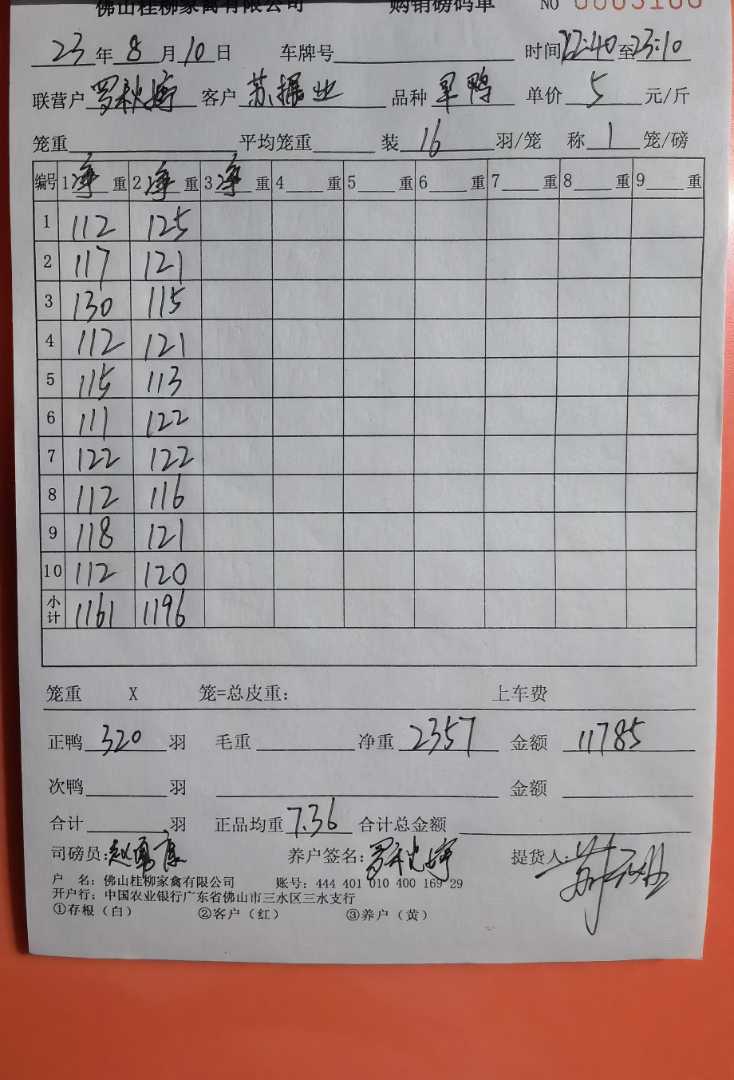 佛山桂柳家禽有限公司 购销磅码单 NO
23年8月10日 车牌号 时间22:40至23:10
联营户 罗秋婷 客户 苏振业 品种 旱鸭 单价 5 元/斤
笼重 平均笼重 装 16 羽/笼 称 1 笼/磅
编号 1净重 2净重 3净重 4 重 5 重 6 重 7 重 8 重 9 重
1 112 125
2 117 121
3 130 115
4 112 121
5 115 113
6 111 122
7 122 122
8 112 116
9 118 121
10 112 120
小计 1161 1196
笼重 X 笼=总皮重: 上车费
正鸭 320 羽 毛重 净重 2357 金额 11785
次鸭 羽 金额
合计 羽 正品均重 7.36 合计总金额
司磅员: 养户签名: 罗秋婷 提货人:
户 名: 佛山桂柳家禽有限公司 账号: 444 401 010 400 169 29
开户行: 中国农业银行广东省佛山市三水区三水支行
①存根(白) ②客户(红) ③养户(黄)